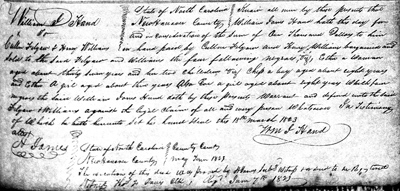 William I Hand
to
Cullen Folgear & Henry Williams
State of North Carolina
New Hanover County
Know all men by this presents that
William Ians Hand hath this day for
and in consideration of the sum of One Thousand Dollars to him
in hand paid by Cullen Folgear and Henry Williams bargained and
sold to the said Folgear and Williams the four following negroes, (viz) Esther a woman
aged about thirty four years and her two children (viz) Chip a boy aged about eight years
and Esther A girl aged about this years Also a girl aged about eight years which four
negroes the said William Ians Hand doth by this presents Warrant and defend unto the said
Folgear & Williams against the legal claim of all and every person Whatever In Testimony
of Which he hath hereunto Set his hand & seal the 18th March 1823
Wm I Hand
attest
H James
State of North Carolina
New Hanover County
County Court
May Term 1827
The execution of this deed was proved by
and to be Registered
1827